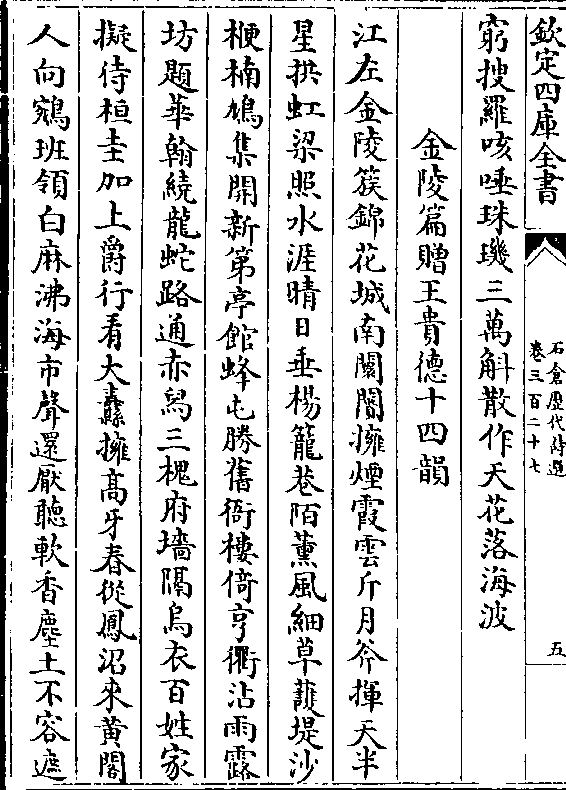 欽定四庫全書
石倉歴代詩選
卷三百二十七
五
窮搜羅咳唾珠璣三萬斛散作天花落海波
金陵篇贈王貴德十四韻
江左金陵簇錦花城南闤闠擁煙霞雲斤月斧揮天半
星拱虹梁照水涯晴日垂楊籠巷陌薰風細草䕶堤沙
楩楠鳩集開新第亭館蜂屯勝舊衙樓倚亨衢沾雨露
坊題華翰繞龍蛇路通赤舄三槐府墻隔烏衣百姓家
擬侍桓圭加上爵行看大纛擁高牙春從鳳沼來黄閣
人向鵷班領白麻沸海市聲還厭聽軟香塵土不容遮